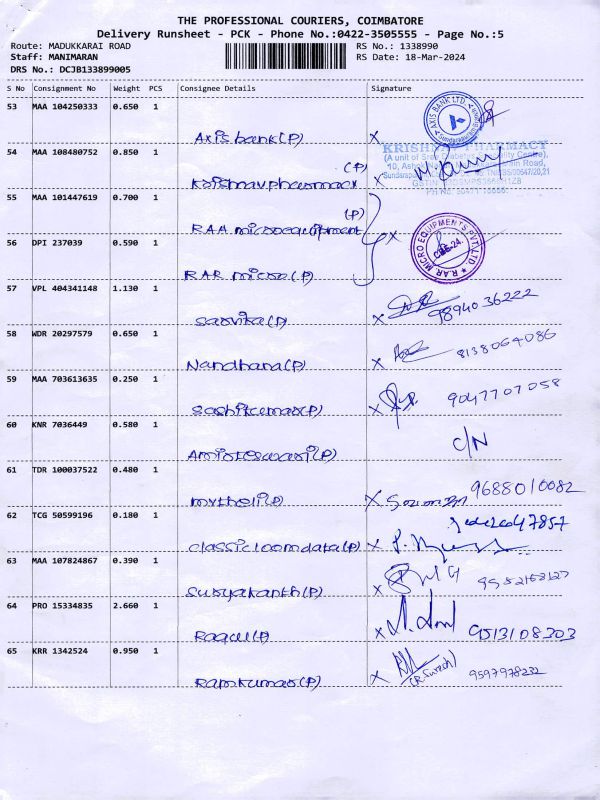 THE PROFESSIONAL COURIERS, COIMBATORE
Delivery Runsheet - PCK - Phone No.:0422-3505555 - Page No.:5
Route: MADUKKARAI ROAD RS No.: 1338990
Staff: MANIMARAN RS Date: 18-Mar-2024
DRS No.: DCJB133899005
S No Consignment No Weight PCS Consignee Details Signature
53 MAA 104250333 0.650 1
Axis bank(P) X
AXIS BANK LTD.
54 MAA 108480752 0.850 1
(P) X
KRISHNA PHARMACY
55 MAA 101447619 0.700 1
(P)
R.A.A. X
56 DPI 237039 0.590 1
RAR micro(P)
RAR MICRO EQUIPMENTS PVT LTD.
CBE-24.
57 VPL 404341148 1.130 1
Sasvika(P) X 9894036222
58 WDR 20297579 0.650 1
Nandhana(P) X 8138064086
59 MAA 703613635 0.250 1
Sashikumar(P) X 9047707058
60 KNR 7036449 0.580 1
C/N
61 TDR 100037522 0.480 1
mytheli(P) X 9688010082
62 TCG 50599196 0.180 1
classicloomdata(P) X
63 MAA 107824867 0.390 1
Suryakanth(P) X
64 PRO 15334835 2.660 1
X 9513108303
65 KRR 1342524 0.950 1
Ramkumar(P) X (R.Suresh) 9597978232